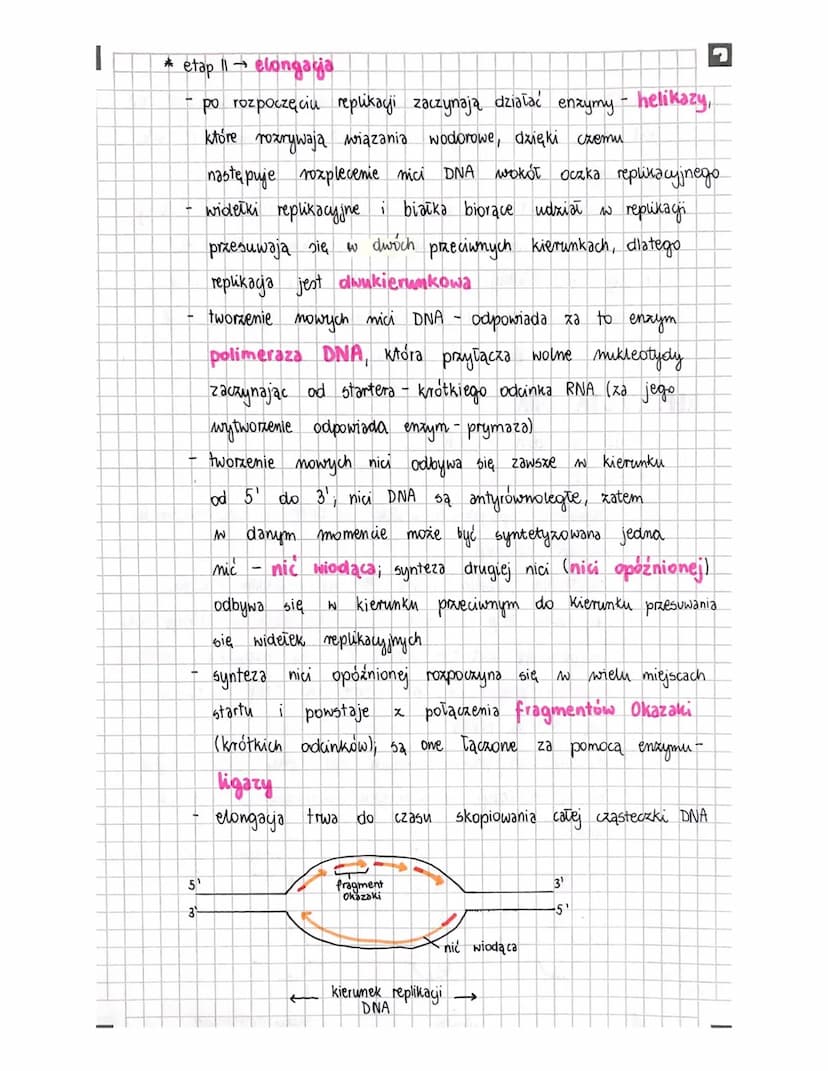 * etap II → elongacja
- po rozpoczęciu replikacji zaczynają działać enzymy - helikazy,
które rozrywają wiązania wodorowe, dzięki czemu
następuje rozplecenie nici DNA wokół oczka replikacyjnego
- widełki replikacyjne i białka biorące udział w replikacji
przesuwają się w dwóch przeciwnych kierunkach, dlatego
replikacja jest dwukierunkowa
- tworzenie nowych nici DNA - odpowiada za to enzym
polimeraza DNA, która przyłącza wolne nukleotydy
zaczynając od startera - krótkiego odcinka RNA (za jego
wytworzenie odpowiada enzym - prymaza)
- tworzenie nowych nici odbywa się zawsze w kierunku
od 5' do 3'; nici DNA są antyrównoległe, zatem
w danym momencie może być syntetyzowana jedna
nić - nić wiodąca; synteza drugiej nici (nici opóźnionej)
odbywa się w kierunku przeciwnym do kierunku przesuwania
się widełek replikacyjnych
- synteza nici opóźnionej rozpoczyna się w wielu miejscach
startu i powstaje z połączenia fragmentów Okazaki
(krótkich odcinków); są one łączone za pomocą enzymu -
ligazy
- elongacja trwa do czasu skopiowania całej cząsteczki DNA
5' 3'
fragment
Okazaki
3' 5'
nić wiodąca
← kierunek replikacji →
DNA